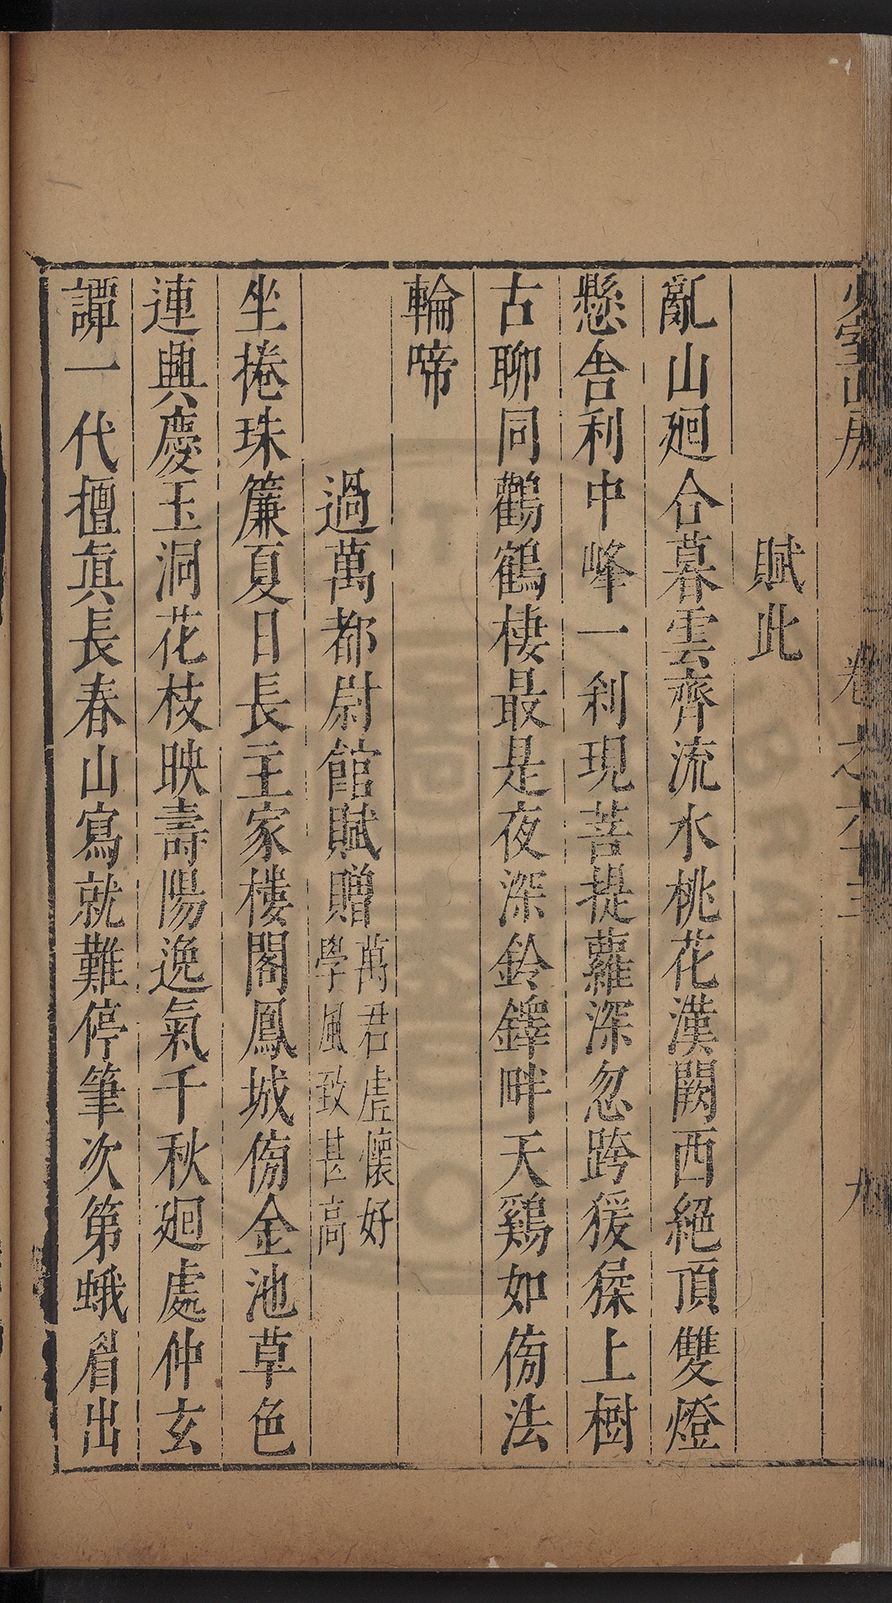 少室山房 卷之六十三 九
賦此
亂山廻合暮雲齊流水桃花漢闕西絕頂雙燈
懸舍利中峰一刹現菩提蘿深忽跨猨猱上樹
古聊同鸛鶴棲最是夜深鈴鐸畔天鷄如傍法
輪啼
過萬都尉館賦贈萬君虛懷好
學風致甚高
坐捲珠簾夏日長主家樓閣鳳城傍金池草色
連興慶玉洞花枝映壽陽逸氣千秋廻處仲玄
譚一代擅眞長春山寫就難停筆次第蛾眉出